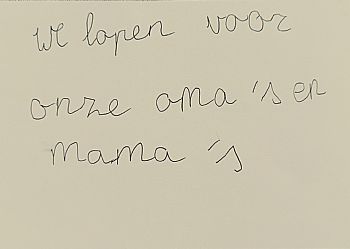 We lopen voor
onze oma 's en
mama 's